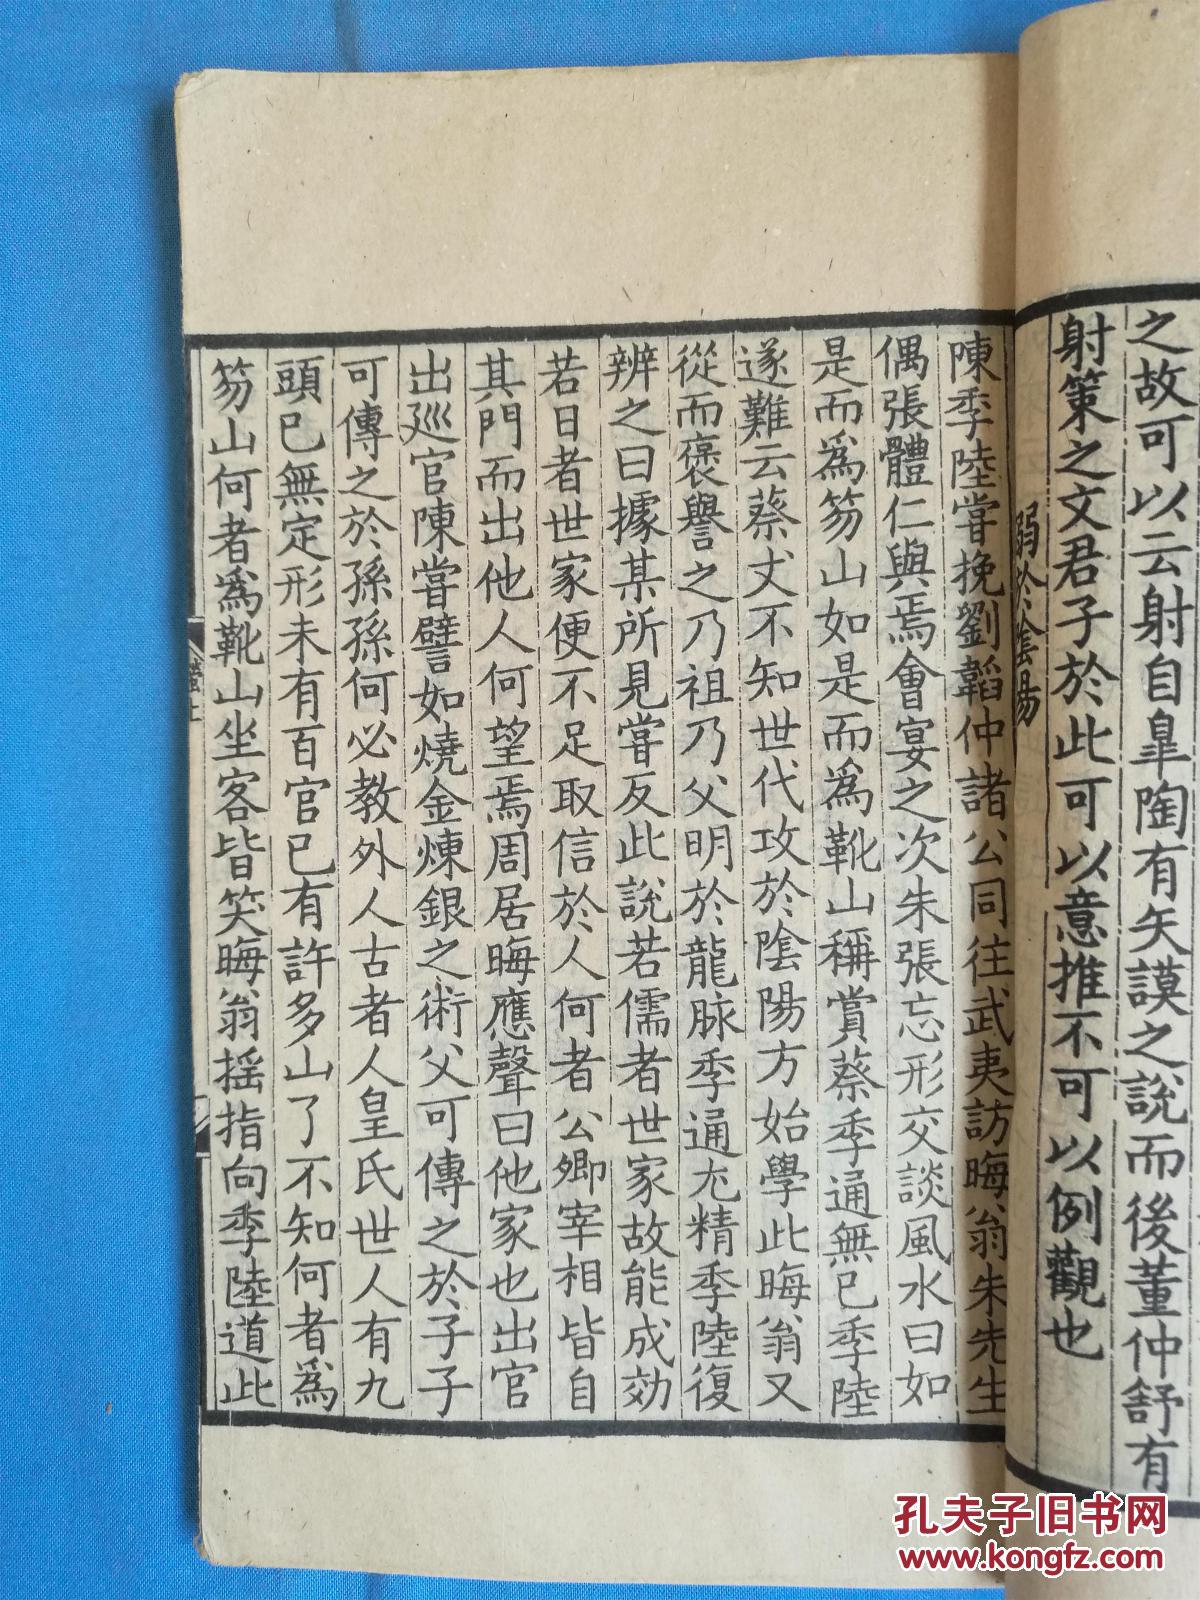 之故可以云射自臯陶有矢謨之說而後董仲舒有
射策之文君子於此可以意推不可以例觀也
弱於陰陽
陳季陸嘗挽劉韜仲諸公同往武夷訪晦翁朱先生
偶張體仁與焉會宴之次朱張忘形交談風水曰如
是而爲笏山如是而爲靴山稱賞蔡季通無已季陸
遂難云蔡丈不知世代攻於陰陽方始學此晦翁又
從而褒譽之乃祖乃父明於龍脉季通尤精季陸復
辨之曰據某所見嘗反此說若儒者世家故能成効
若日者世家便不足取信於人何者公卿宰相皆自
其門而出他人何望焉周居晦應聲曰他家也出官
出廵官陳嘗譬如燒金煉銀之術父可傳之於子子
可傳之於孫孫何必教外人古者人皇氏世人有九
頭已無定形未有百官已有許多山了不知何者爲
笏山何者爲靴山坐客皆笑晦翁摇指向季陸道此
孔夫子旧书网
www.kongfz.com